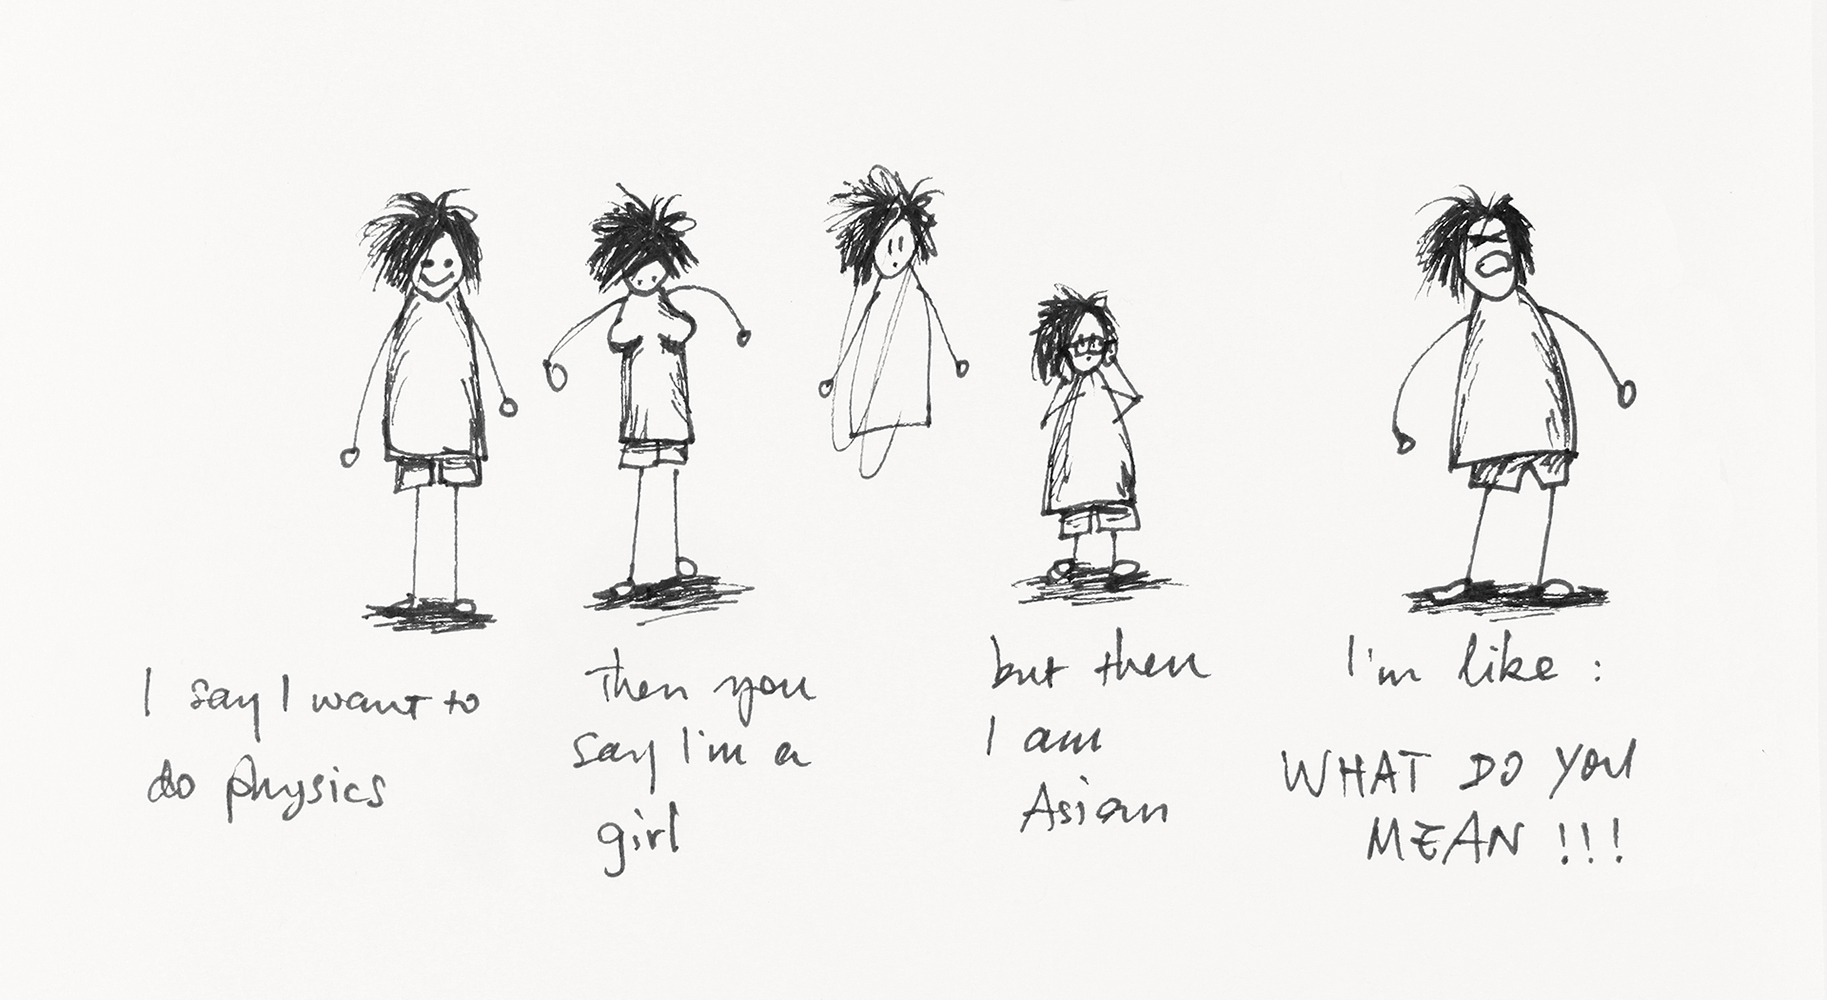 I say I want to
do physics
then you
say I'm a
girl
but then
I am
Asian
I'm like :
WHAT DO YOU
MEAN !!!